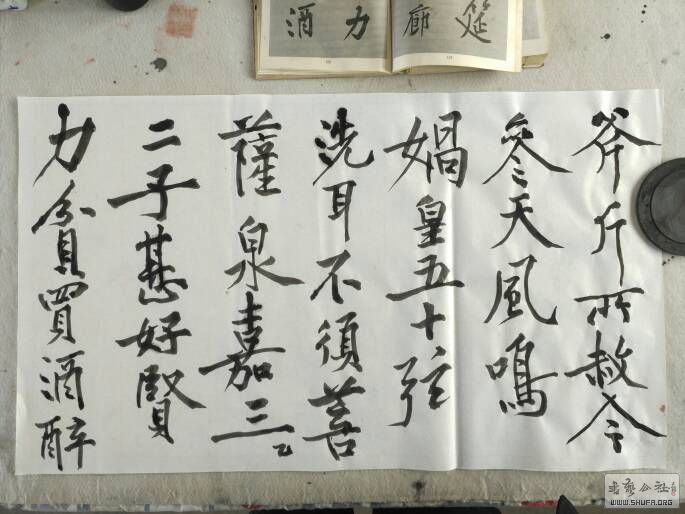 筵廊力酒
斧斤所赦今
參天風鳴
媧皇五十弦
洗耳不須菩
薩泉嘉三
二子甚好賢
力貧買酒醉
WWW.SHUFA.ORG